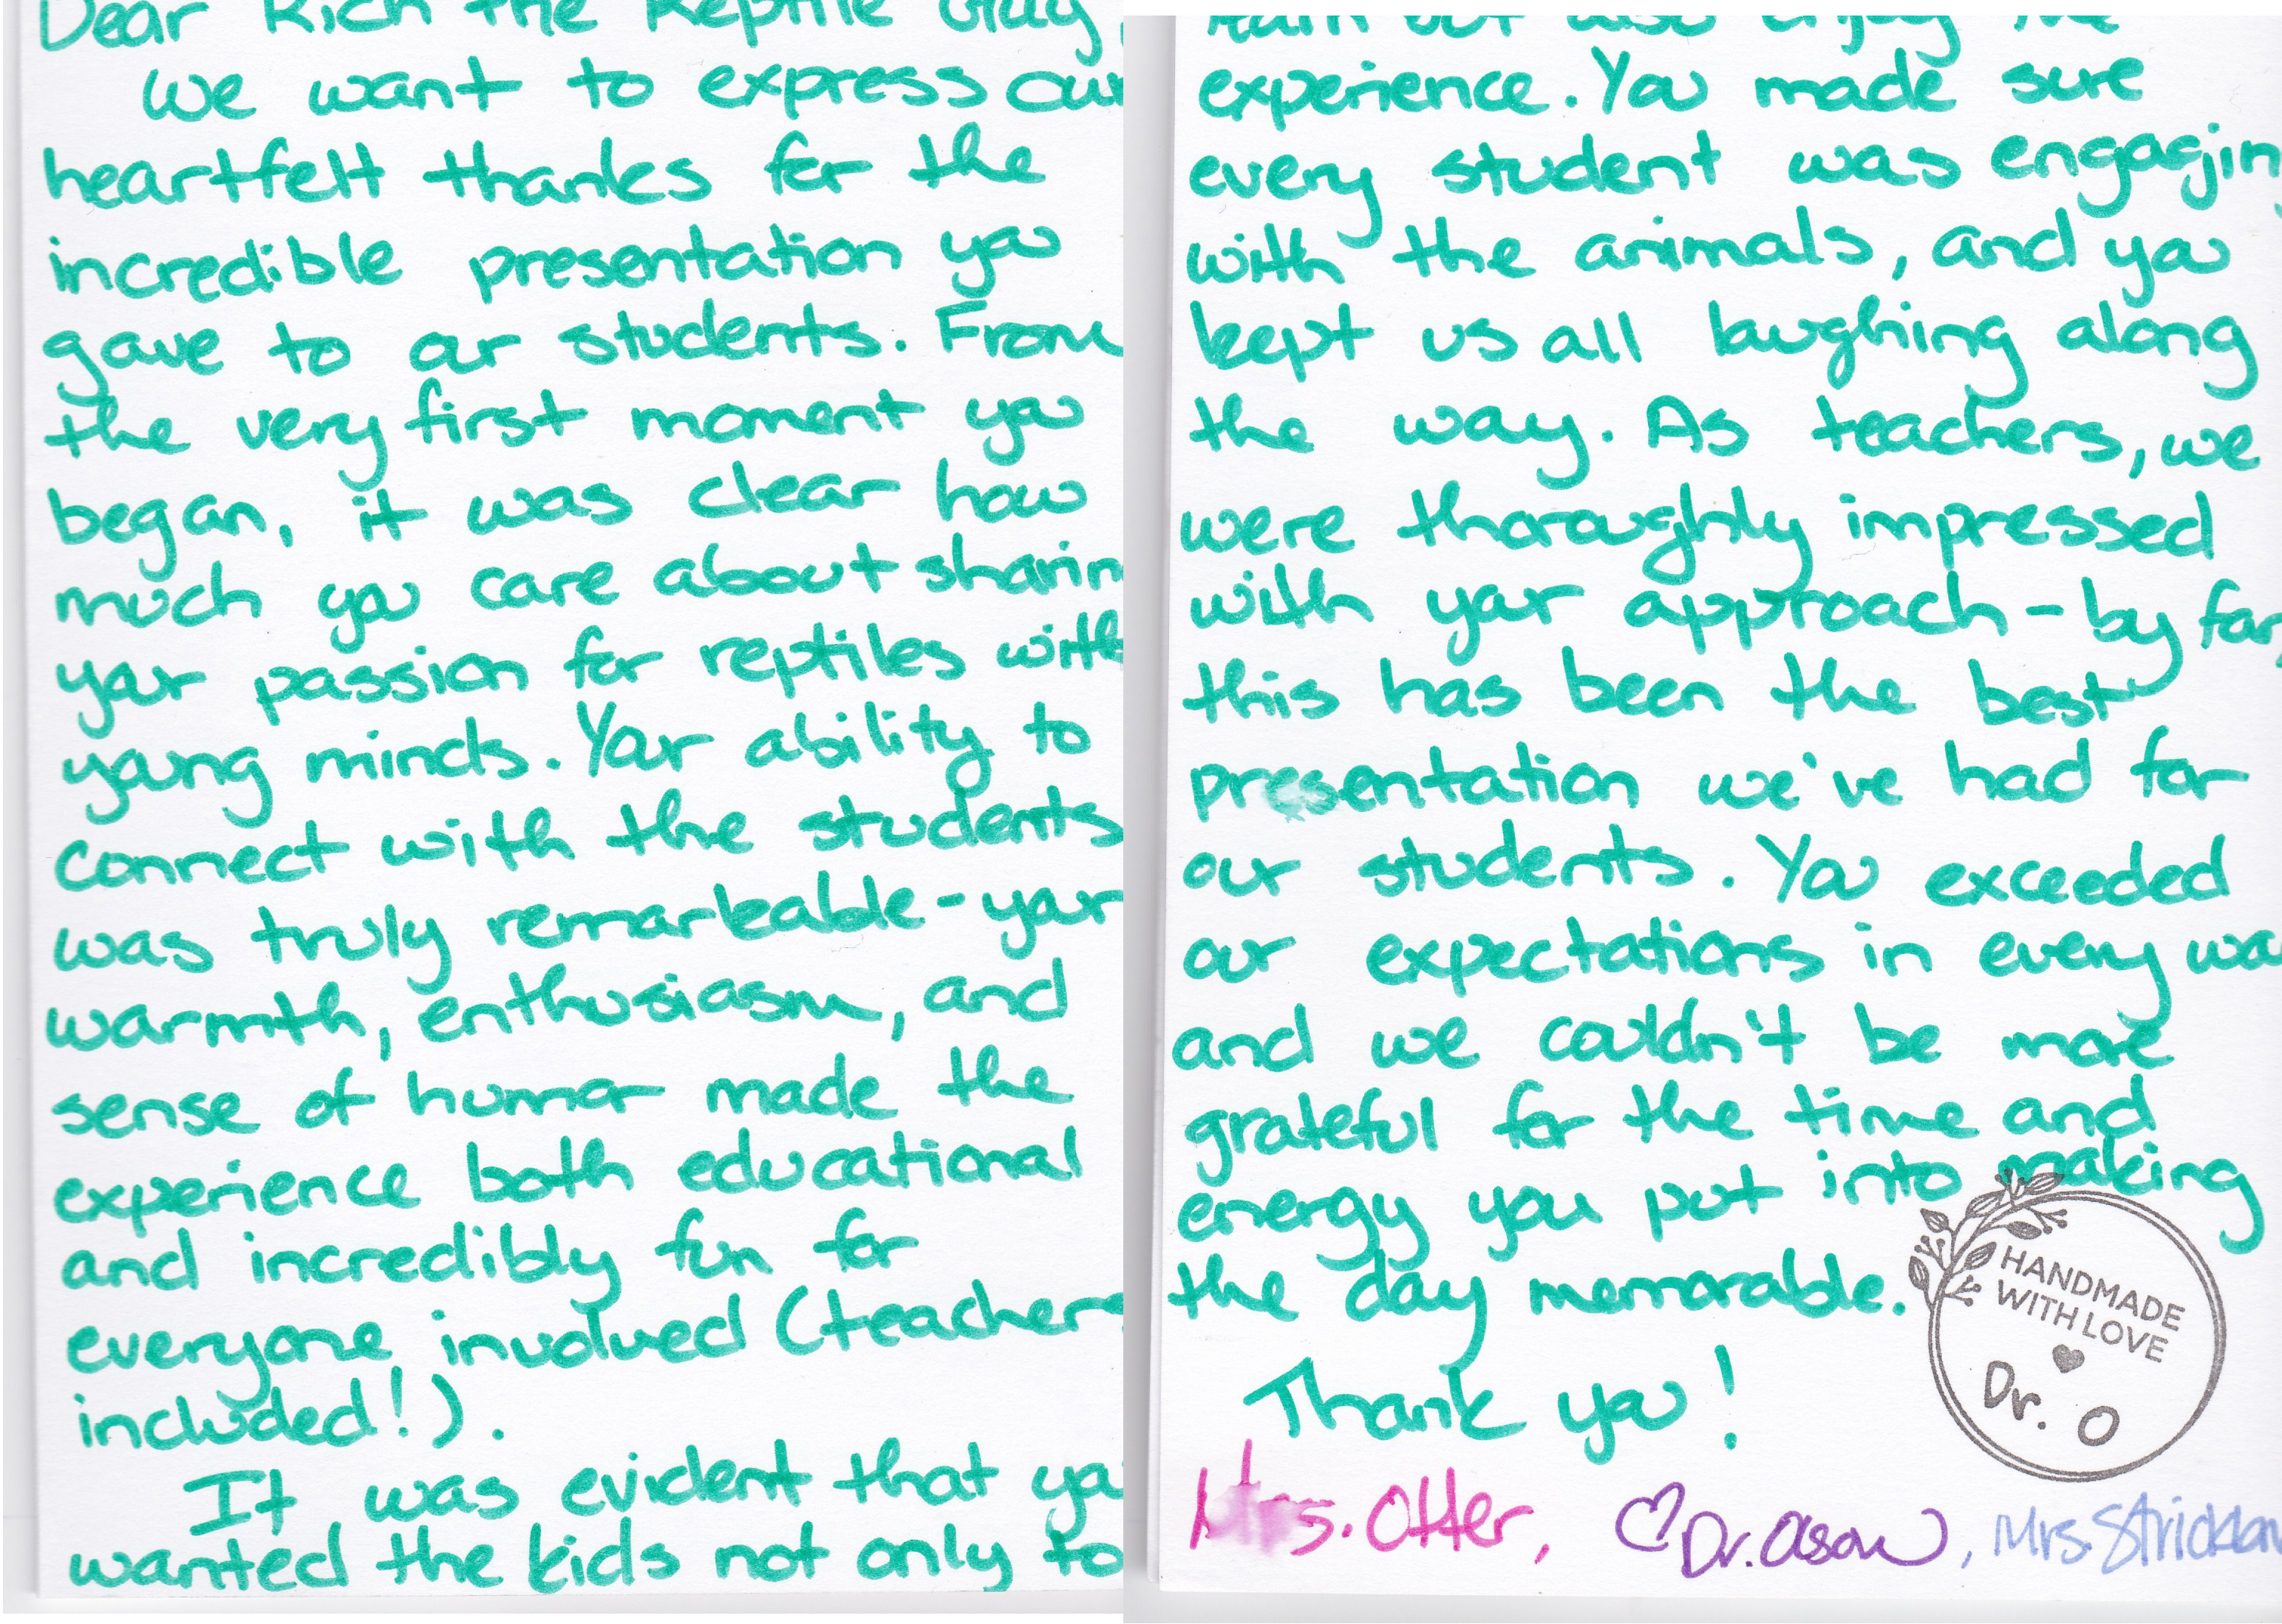 Dear Rich the Reptile Guy,
We want to express our
heartfelt thanks for the
incredible presentation you
gave to our students. From
the very first moment you
began, it was clear how
much you care about sharin
your passion for reptiles with
young minds. Your ability to
connect with the students
was truly remarkable - your
warmth, enthusiasm, and
sense of humor made the
experience both educational
and incredibly fun for
everyone involved (teachers
included!).
It was evident that you
wanted the kids not only to
learn but also enjoy the
experience. You made sure
every student was engaging
with the animals, and you
kept us all laughing along
the way. As teachers, we
were thoroughly impressed
with your approach - by far,
this has been the best
presentation we've had for
our students. You exceeded
our expectations in every wa
and we couldn't be more
grateful for the time and
energy you put into making
the day memorable.
Thank you!
HANDMADE
WITH LOVE
Dr. O
Mrs. Otter, Dr. Olson, Mrs. Stricklan